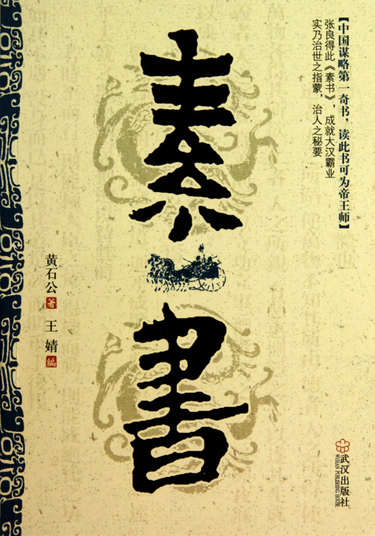 【中国谋略第一奇书，读此书可为帝王师】
张良得此《素书》，成就大汉霸业
实乃治世之指蒙，治人之秘要
素書
黄石公 著 王婧 编
武汉出版社
WUHAN PUBLISHING HOUSE